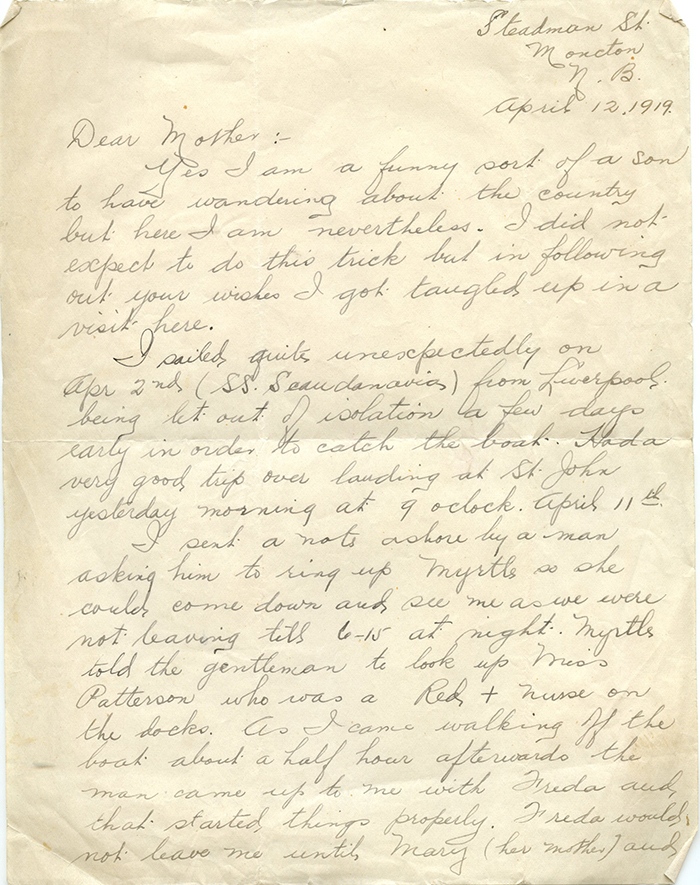 Steadman St.
Moncton
N. B.
April 12, 1919.
Dear Mother:-
Yes I am a funny sort of a son
to have wandering about the country
but here I am nevertheless. I did not
expect to do this trick but in following
out your wishes I got tangled up in a
visit here.
I sailed quite unexpectedly on
Apr 2nd (SS. Scandanavia) from Liverpool.
being let out of isolation a few days
early in order to catch the boat. Had a
very good trip over landing at St. John
yesterday morning at 9 oclock. April 11th.
I sent a note ashore by a man
asking him to ring up Myrtle so she
could come down and see me as we were
not leaving till 6-15 at night. Myrtle
told the gentleman to look up Miss
Patterson who was a Red + nurse on
the docks. As I came walking off the
boat about a half hour afterwards the
man came up to me with Freda and
that started things properly. Freda would
not leave me until Mary (her mother) and